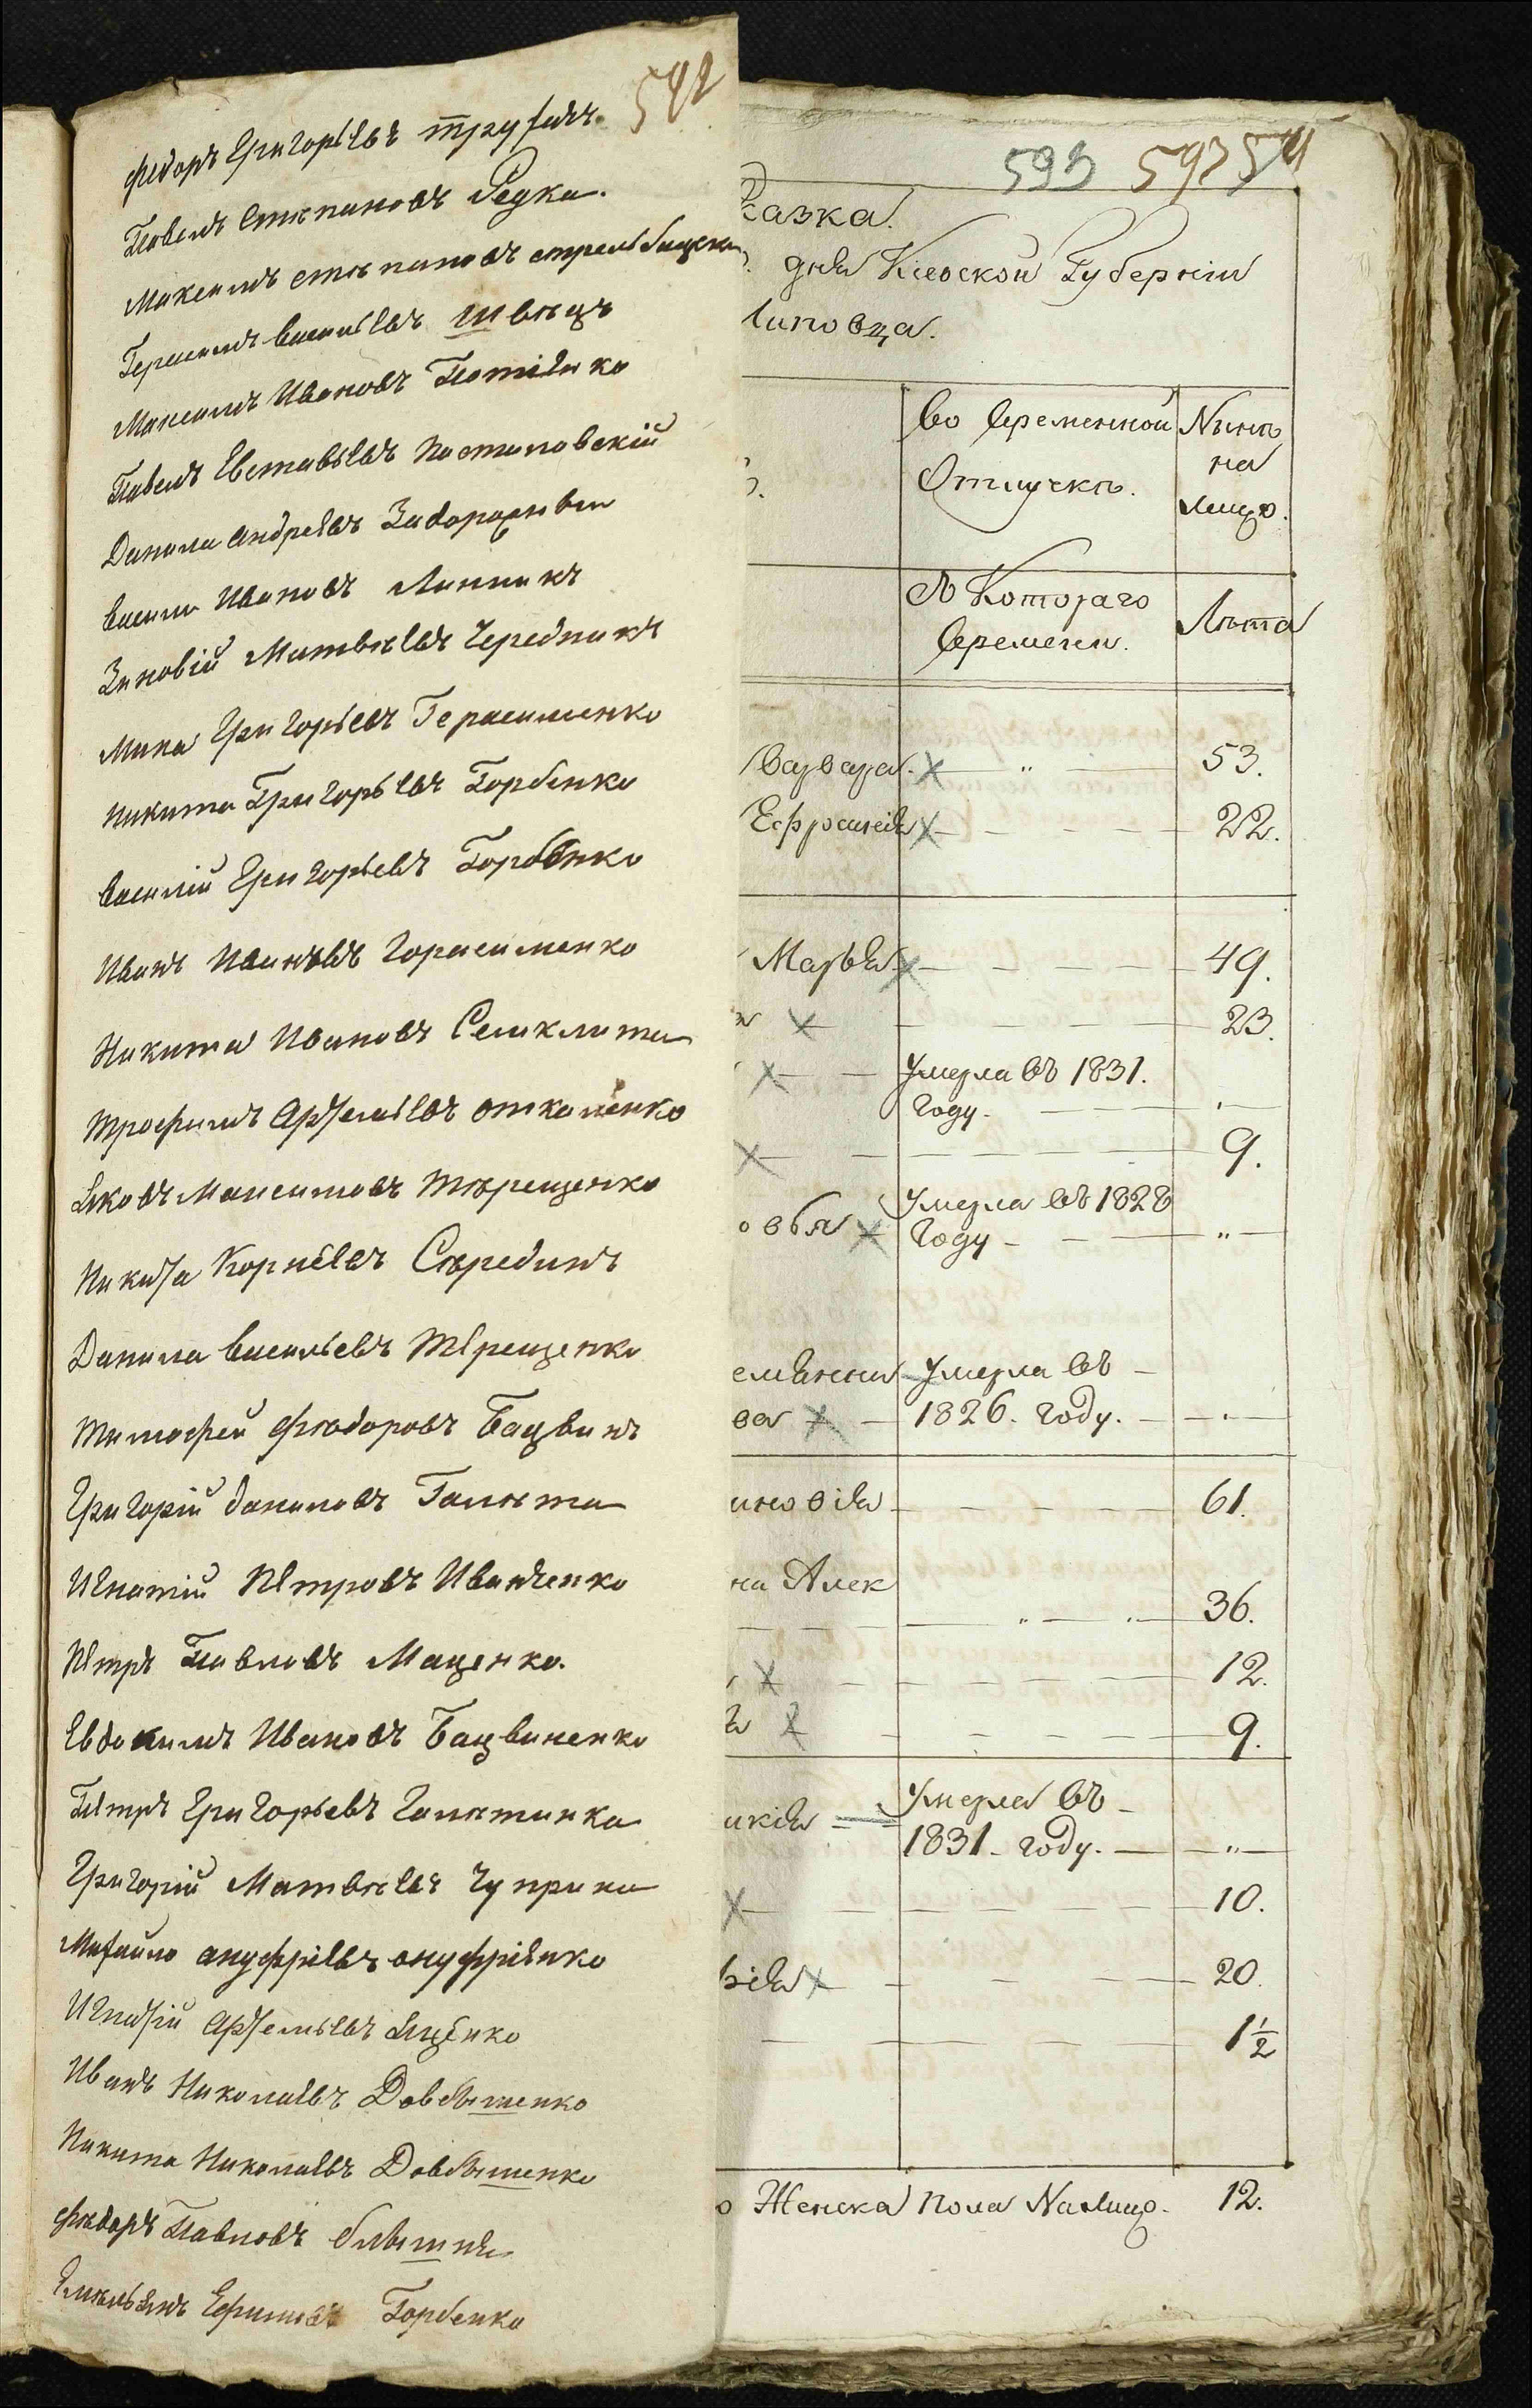 542
Федоръ Григорьевъ
Павелъ Степановъ Редка.
Максимъ степановъ стрельбицки
Герасимъ васильевъ швѣцъ
Максимъ Ивановъ Потіенко
Павелъ Евставьевъ Постоловскій
Данила андреевъ Задорожны
василь Ивановъ Линникъ
Зиновій Матвѣевъ Чередникъ
Мина Григорьевъ Герасименко
никита Григорьевъ Горбенко
василій Григорьевъ Горбенко
Иванъ Ивановъ Горасименко
Никита Ивановъ
трофимъ Артемьевъ
Яковъ Максимовъ тѣрещенко
Никита Корнеевъ Сѣрединъ
Данила васильевъ терещенко
тимофей фѣодоровъ Бацвинъ
Григорій даниловъ Галѣта
Игнатій Петровъ Иванченко
Петръ Павловъ Маценко.
Евдокимъ Ивановъ Бацвиненко
Петръ Григорьевъ Галѣтинка
Григорій Матвѣевъ Чуприна
Михайло ануфріевъ онуфріенко
Игнатій Артемьевъ Яценко
Иванъ Николаевъ Довбышенко
Никита Николаевъ Довбышенко
фѣодоръ Павловъ
Емельянъ Ефимовъ Горбенко
593 597 54
казка.
дня Кіевской Губерніи
липовца.
Во временной Отлучкѣ.
Нынѣ на лицо.
Съ Котораго времени.
Лѣта
Варвара. 53.
Ефросинія 22.
Марья 49.
23.
Умерла въ 1831.
году.
9.
овья Умерла въ 1828
году
Умерла въ
ва 1826. году.
иновія 61.
на Алек
36.
12.
9.
Умерла въ
икія 1831. году.
10.
20.
1½
о Женска пола На лицо. 12.